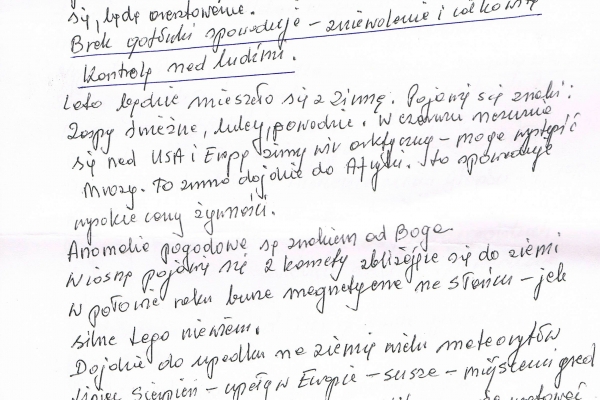 się, będą aresztowane.
Brak gotówki spowoduje – zniewolenie i całkowitą
kontrolę nad ludźmi.
Lato będzie mieszało się z zimą. Pojawią się znaki:
Zaspy śnieżne, lulcy, powodzie. W czerwcu nasunie
się nad USA i Europę zimny wir arktyczny – mogą wystąpić
Mrozy. To zimno dojdzie do Afryki. to spowoduje
wysokie ceny żywności.
Anomalie pogodowe są znakiem od Boga
Wiosną pojawią się 2 komety zbliżające się do ziemi
W połowie roku burze magnetyczne na słońcu – jak
silne tego nie wiem.
Dojdzie do upadku na ziemię wielu meteorytów
Sierpień – upały w Europie – susze – miejscami grad